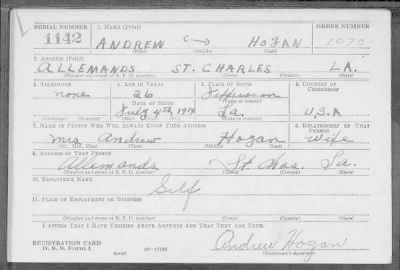 SERIAL NUMBER 1. NAME (Print) ORDER NUMBER
1142 ANDREW HOGAN 1070
(First) (Middle) (Last)
2. ADDRESS (Print)
ALLEMANDS ST. CHARLES LA.
(Number and street or R. F. D. number) (Town) (County) (State)
3. TELEPHONE 4. AGE IN YEARS 5. PLACE OF BIRTH 6. COUNTRY OF CITIZENSHIP
none 26 Jefferson
DATE OF BIRTH (Town or county)
July 4th, 1914 La. U.S.A
(Exchange) (Number) (Mo.) (Day) (Yr.) (State or country)
7. NAME OF PERSON WHO WILL ALWAYS KNOW YOUR ADDRESS 8. RELATIONSHIP OF THAT PERSON
Mrs Andrew Hogan Wife
(Mr., Mrs., Miss) (First) (Middle) (Last)
9. ADDRESS OF THAT PERSON
Allemands St. Chas. La.
(Number and street or R. F. D. number) (Town) (County) (State)
10. EMPLOYER'S NAME
Self
11. PLACE OF EMPLOYMENT OR BUSINESS
(Number and street or R. F. D. number) (Town) (County) (State)
I AFFIRM THAT I HAVE VERIFIED ABOVE ANSWERS AND THAT THEY ARE TRUE.
REGISTRATION CARD Andrew Hogan
D. S. S. Form 1 (over) 16-17105 (Registrant's signature)